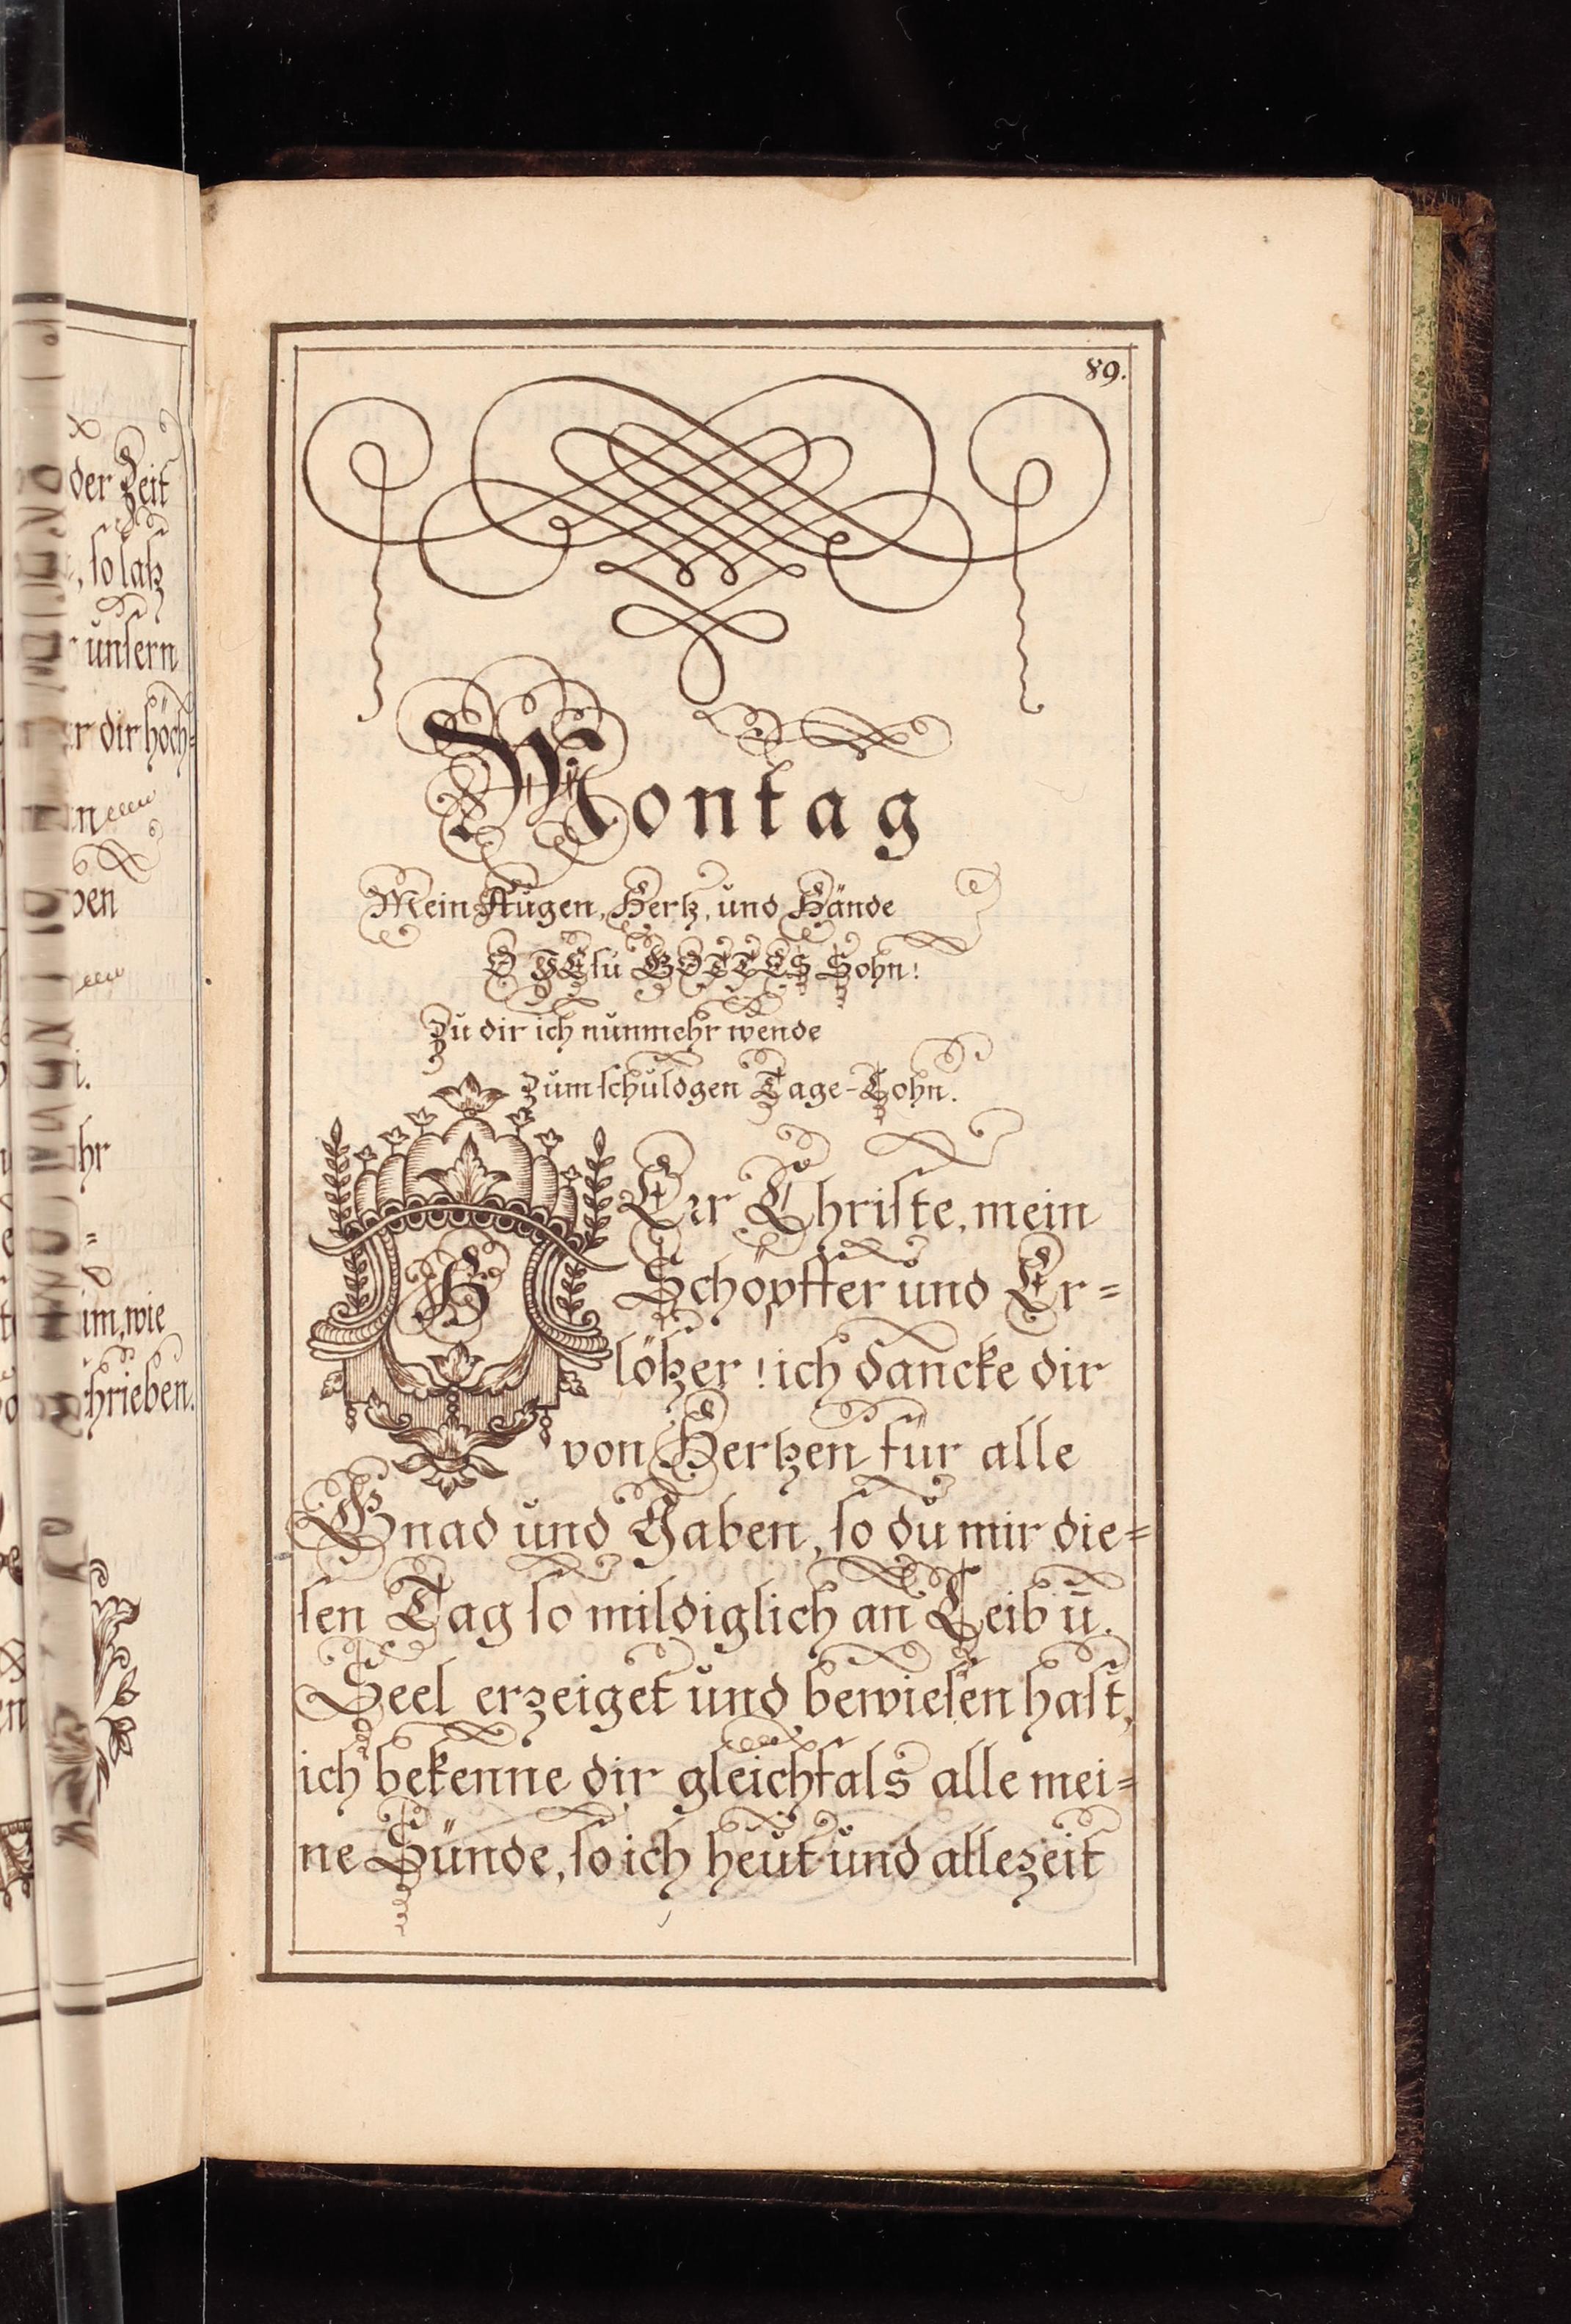 der Zeit
, so laß
unsern
r dir höch=
n
ben
i.
hr
=
im, wie
hrieben.
en
89.
Montag
Mein Augen, Hertz, und Hände
O JEsu GOTTES Sohn!
Zu dir ich nunmehr wende
zum schuldgen Tage-Lohn.
HErr Christe, mein
Schöpffer und Er=
lößer! ich dancke dir
von Hertzen für alle
Gnad und Gaben, so du mir die=
sen Tag so mildiglich an Leib uñ.
Seel erzeiget und bewiesen hast,
ich bekenne dir gleichfals alle mei=
ne Sünde, so ich heut und allezeit